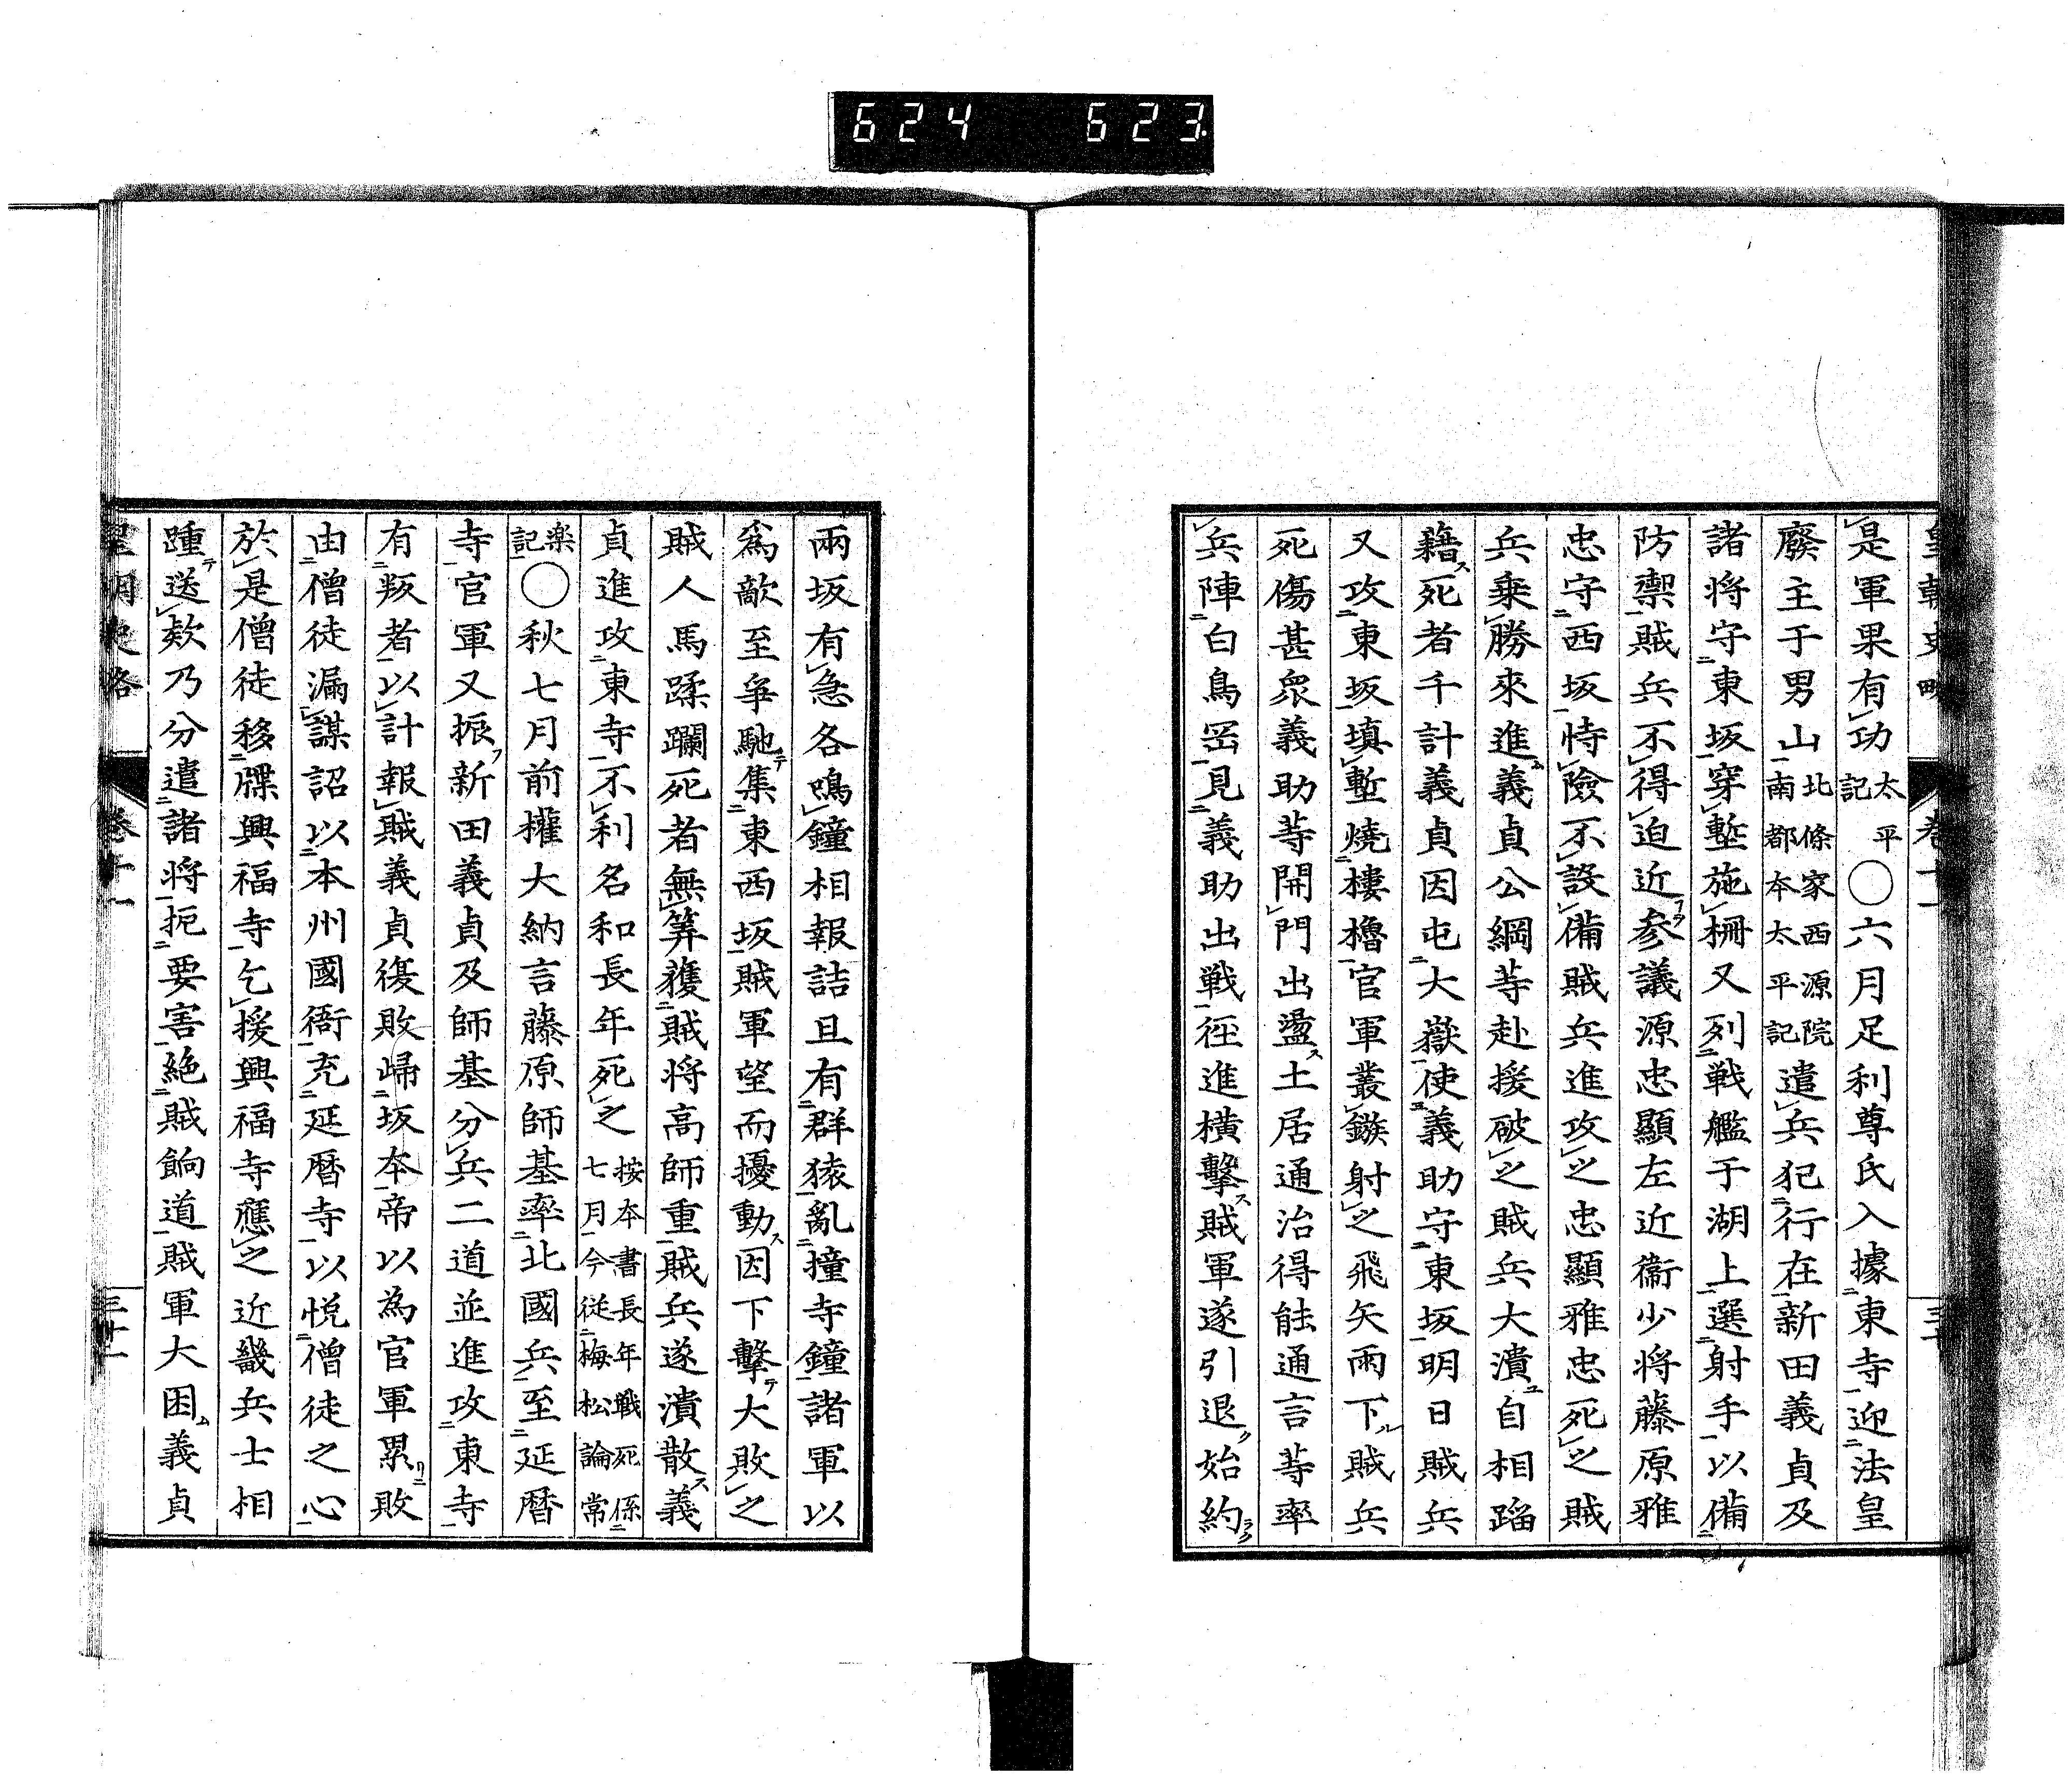 624 623
皇朝史略 卷十一
是軍果有功太平記〇六月足利尊氏入據東寺迎法皇
廢主于男山北條家西源院南都本太平記遣兵犯行在新田義貞及
諸将守東坂穿塹施柵又列戦艦于湖上選射手以備
防禦賊兵不得迫近参議源忠顯左近衞少将藤原雅
忠守西坂恃險不設備賊兵進攻之忠顯雅忠死之賊
兵乗勝來進義貞公綱等赴援破之賊兵大潰自相蹈
藉死者千計義貞因屯大嶽使義助守東坂明日賊兵
又攻東坂填塹焼樓櫓官軍叢鏃射之飛矢雨下賊兵
死傷甚衆義助等開門出盪土居通治得能通言等率
兵陣白鳥岡見義助出戦徑進横擊賊軍遂引退始約
兩坂有急各鳴鐘相報詰旦有群猿亂撞寺鐘諸軍以
爲敵至爭馳集東西坂賊軍望而擾動因下擊大敗之
賊人馬蹂躙死者無筭獲賊将高師重賊兵遂潰散義
貞進攻東寺不利名和長年死之按本書長年戦死係七月今従梅松論常
楽記〇秋七月前權大納言藤原師基率北國兵至延暦
寺官軍又振新田義貞及師基分兵二道並進攻東寺
有叛者以計報賊義貞復敗歸坂本帝以為官軍累敗
由僧徒漏謀詔以本州國衙充延暦寺以悦僧徒之心
於是僧徒移牒興福寺乞援興福寺應之近畿兵士相
踵送欵乃分遣諸将扼要害絶賊餉道賊軍大困義貞
皇朝史略 卷十一 三十一